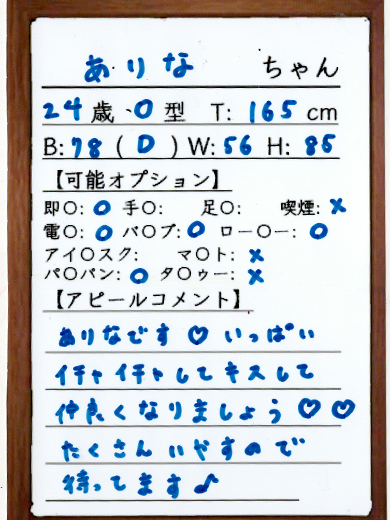 ありな ちゃん
24歳 O型 T: 165cm
B: 78 ( D ) W: 56 H: 85
【可能オプション】
即〇: O 手〇: 足〇: 喫煙: ×
電〇: O バ〇ブ: O ロー〇ー: O
アイ〇スク: マ〇ト: ×
パ〇パン: O タ〇ゥー: ×
【アピールコメント】
ありなです♡いっぱい
イチャイチャしてキスして
仲良くなりましょう♡♡
たくさんいやすので
待ってます♪